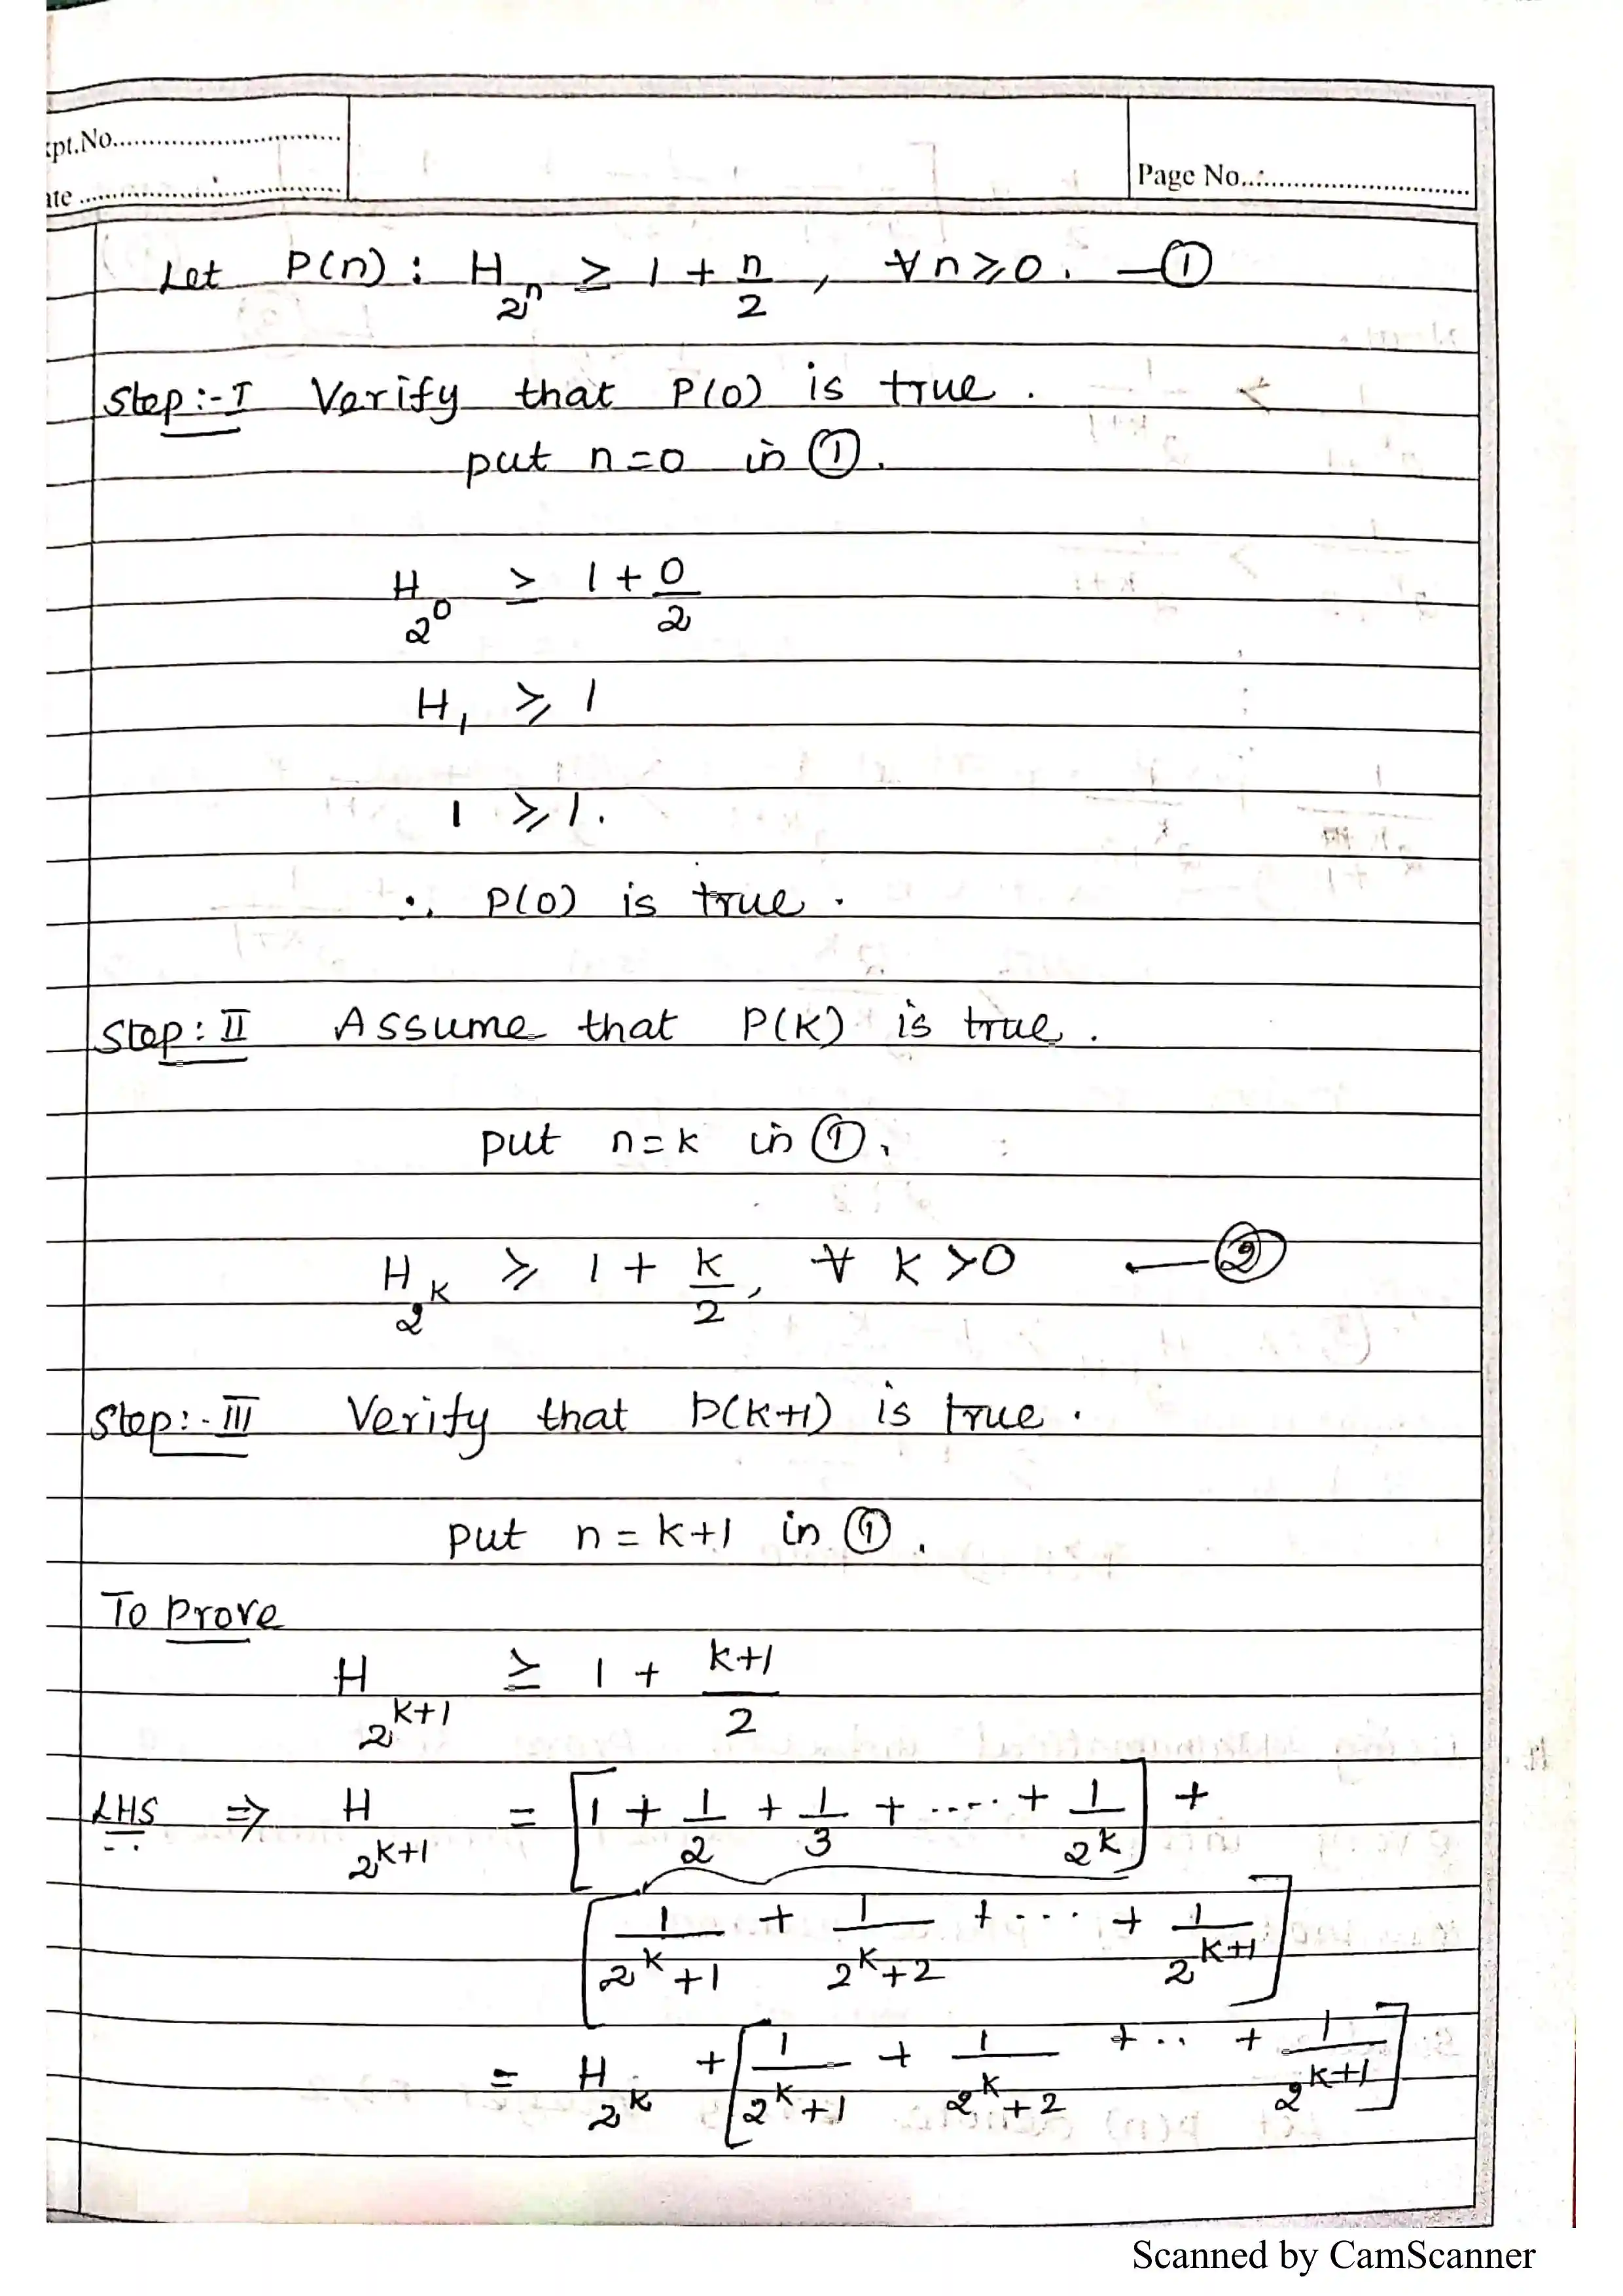 xpt.No.
ate
Page No.
Let P(n) : H_{2^n} ≥ 1 + n/2 , ∀ n ≥ 0 . —①
Step:-I Verify that P(0) is true .
put n=0 in ①.
H_{2^0} ≥ 1 + 0/2
H_1 ≥ 1
1 ≥ 1.
∴ P(0) is true .
Step: II Assume that P(K) is true .
put n=k in ①,
H_{2^K} ≥ 1 + K/2 , ∀ K >0 —②
Step:-III Verify that P(K+1) is true .
put n = k+1 in ① .
To prove
H_{2^{k+1}} ≥ 1 + (k+1)/2
LHS ⇒ H_{2^{k+1}} = [1 + 1/2 + 1/3 + ---- + 1/2^k] +
[1/(2^k+1) + 1/(2^k+2) + --- + 1/2^{k+1}]
= H_{2^k} + [1/(2^k+1) + 1/(2^k+2) + .. + 1/2^{k+1}]
Scanned by CamScanner